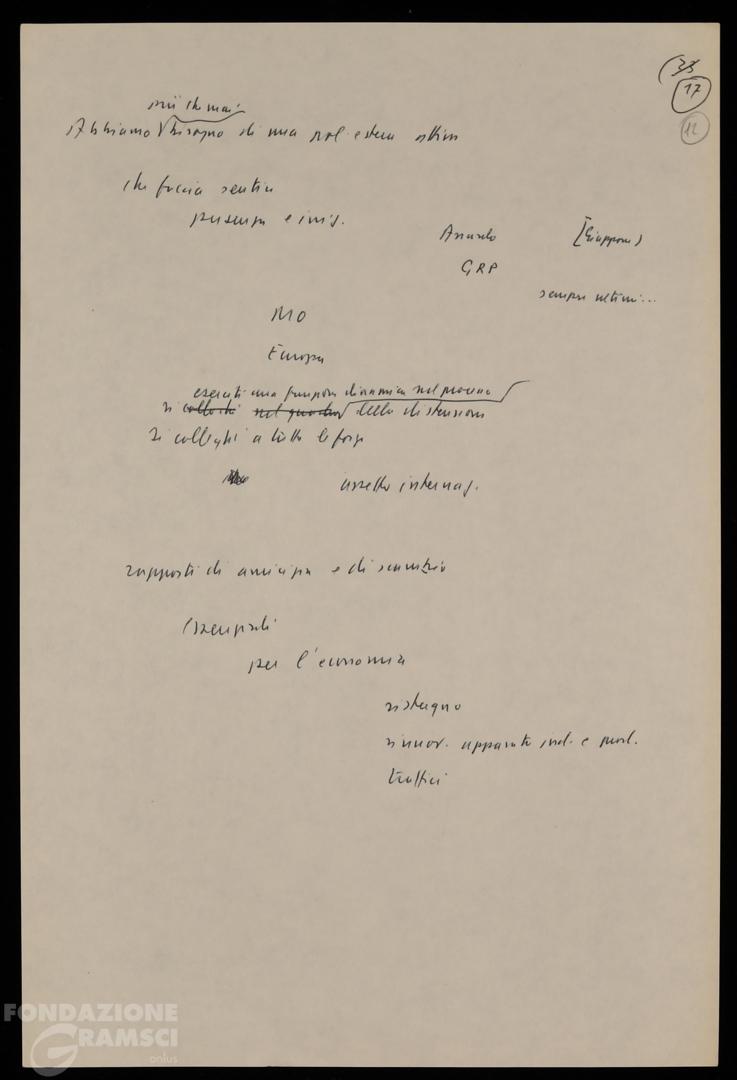 (33
17
12
più che mai
Abbiamo bisogno di una pol. estera attiva
che faccia sentire
presenza e iniz.
[Giappone]
GRP
sempre ultimi...
MO
Europa
eserciti una funzione dinamica nel processo
si collochi nel quadro della distensione
Si colleghi a tutte le forze
assetto internaz.
rapporti di amicizia e di scambio
Essenziali
per l'economia
ristagno
rinnov. apparato ind. e prod.
traffici
FONDAZIONE
GRAMSCI
onlus